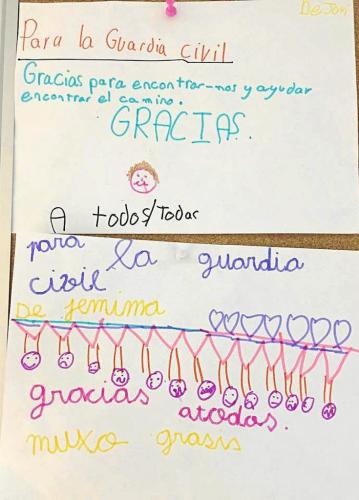 De Jon
Para la Guardia civil
Gracias para encontrar-nos y ayudar
encontrar el camino.
GRACIAS.
A todos/Todas
para la guardia
civil
De jemima
gracias atodos.
muxo grasis